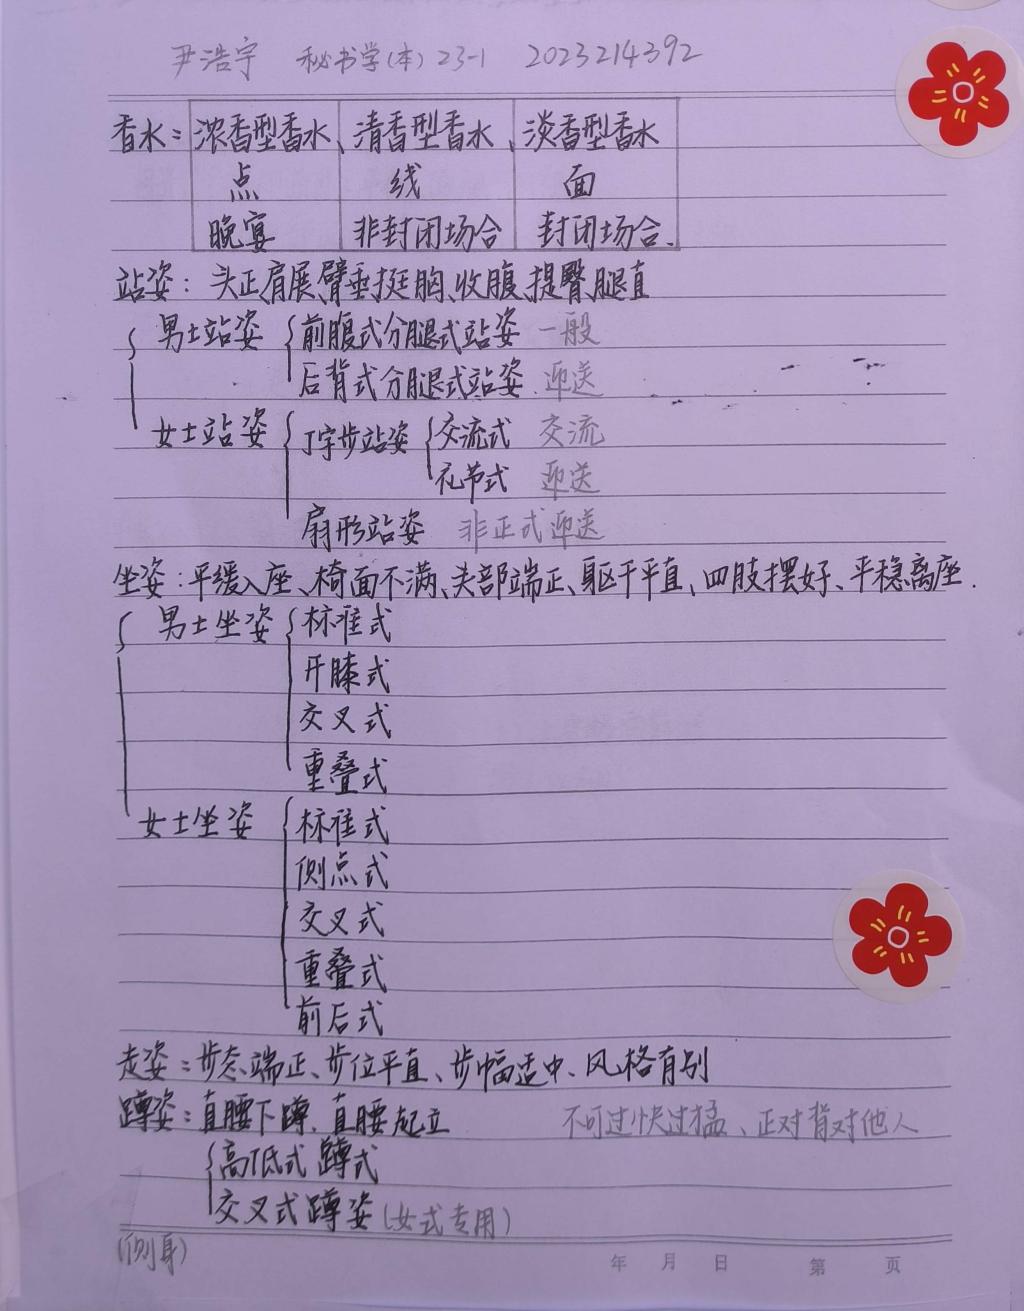 尹浩宇 秘书学(本)23-1 2023214392
香水: 浓香型香水、清香型香水、淡香型香水
点 线 面
晚宴 非封闭场合 封闭场合.
站姿: 头正、肩展、臂垂、挺胸、收腹、提臀、腿直
男士站姿 前腹式分腿式站姿 一般
后背式分腿式站姿 迎送
女士站姿 丁字步站姿 交流式 交流
礼节式 迎送
扇形站姿 非正式迎送
坐姿: 平缓入座、椅面不满、头部端正、躯干平直、四肢摆好、平稳离座.
男士坐姿 标准式
开膝式
交叉式
重叠式
女士坐姿 标准式
侧点式
交叉式
重叠式
前后式
走姿: 步态端正、步位平直、步幅适中、风格有别
蹲姿: 直腰下蹲、直腰起立 不可过快过猛、正对背对他人
高低式蹲式
交叉式蹲姿(女式专用)
(侧身)
年 月 日 第 页